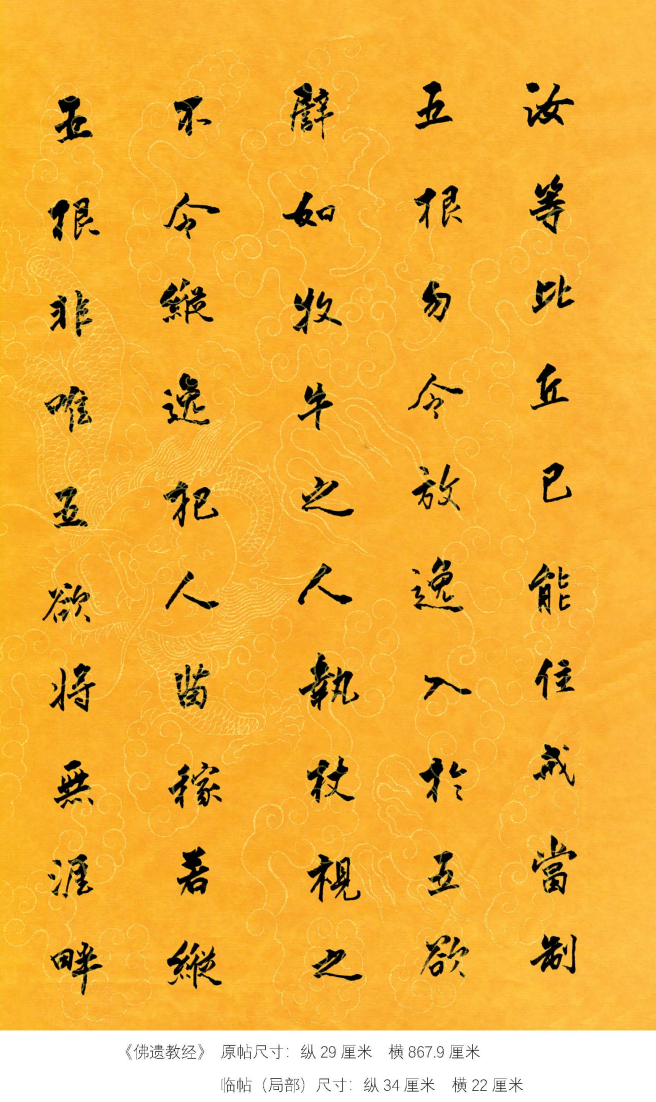 汝等比丘已能住戒當制
五根勿令放逸入於五欲
譬如牧牛之人執杖視之
不令縱逸犯人苗稼若縱
五根非唯五欲將無涯畔
《佛遗教经》 原帖尺寸：纵29厘米 横867.9厘米
临帖（局部）尺寸：纵34厘米 横22厘米